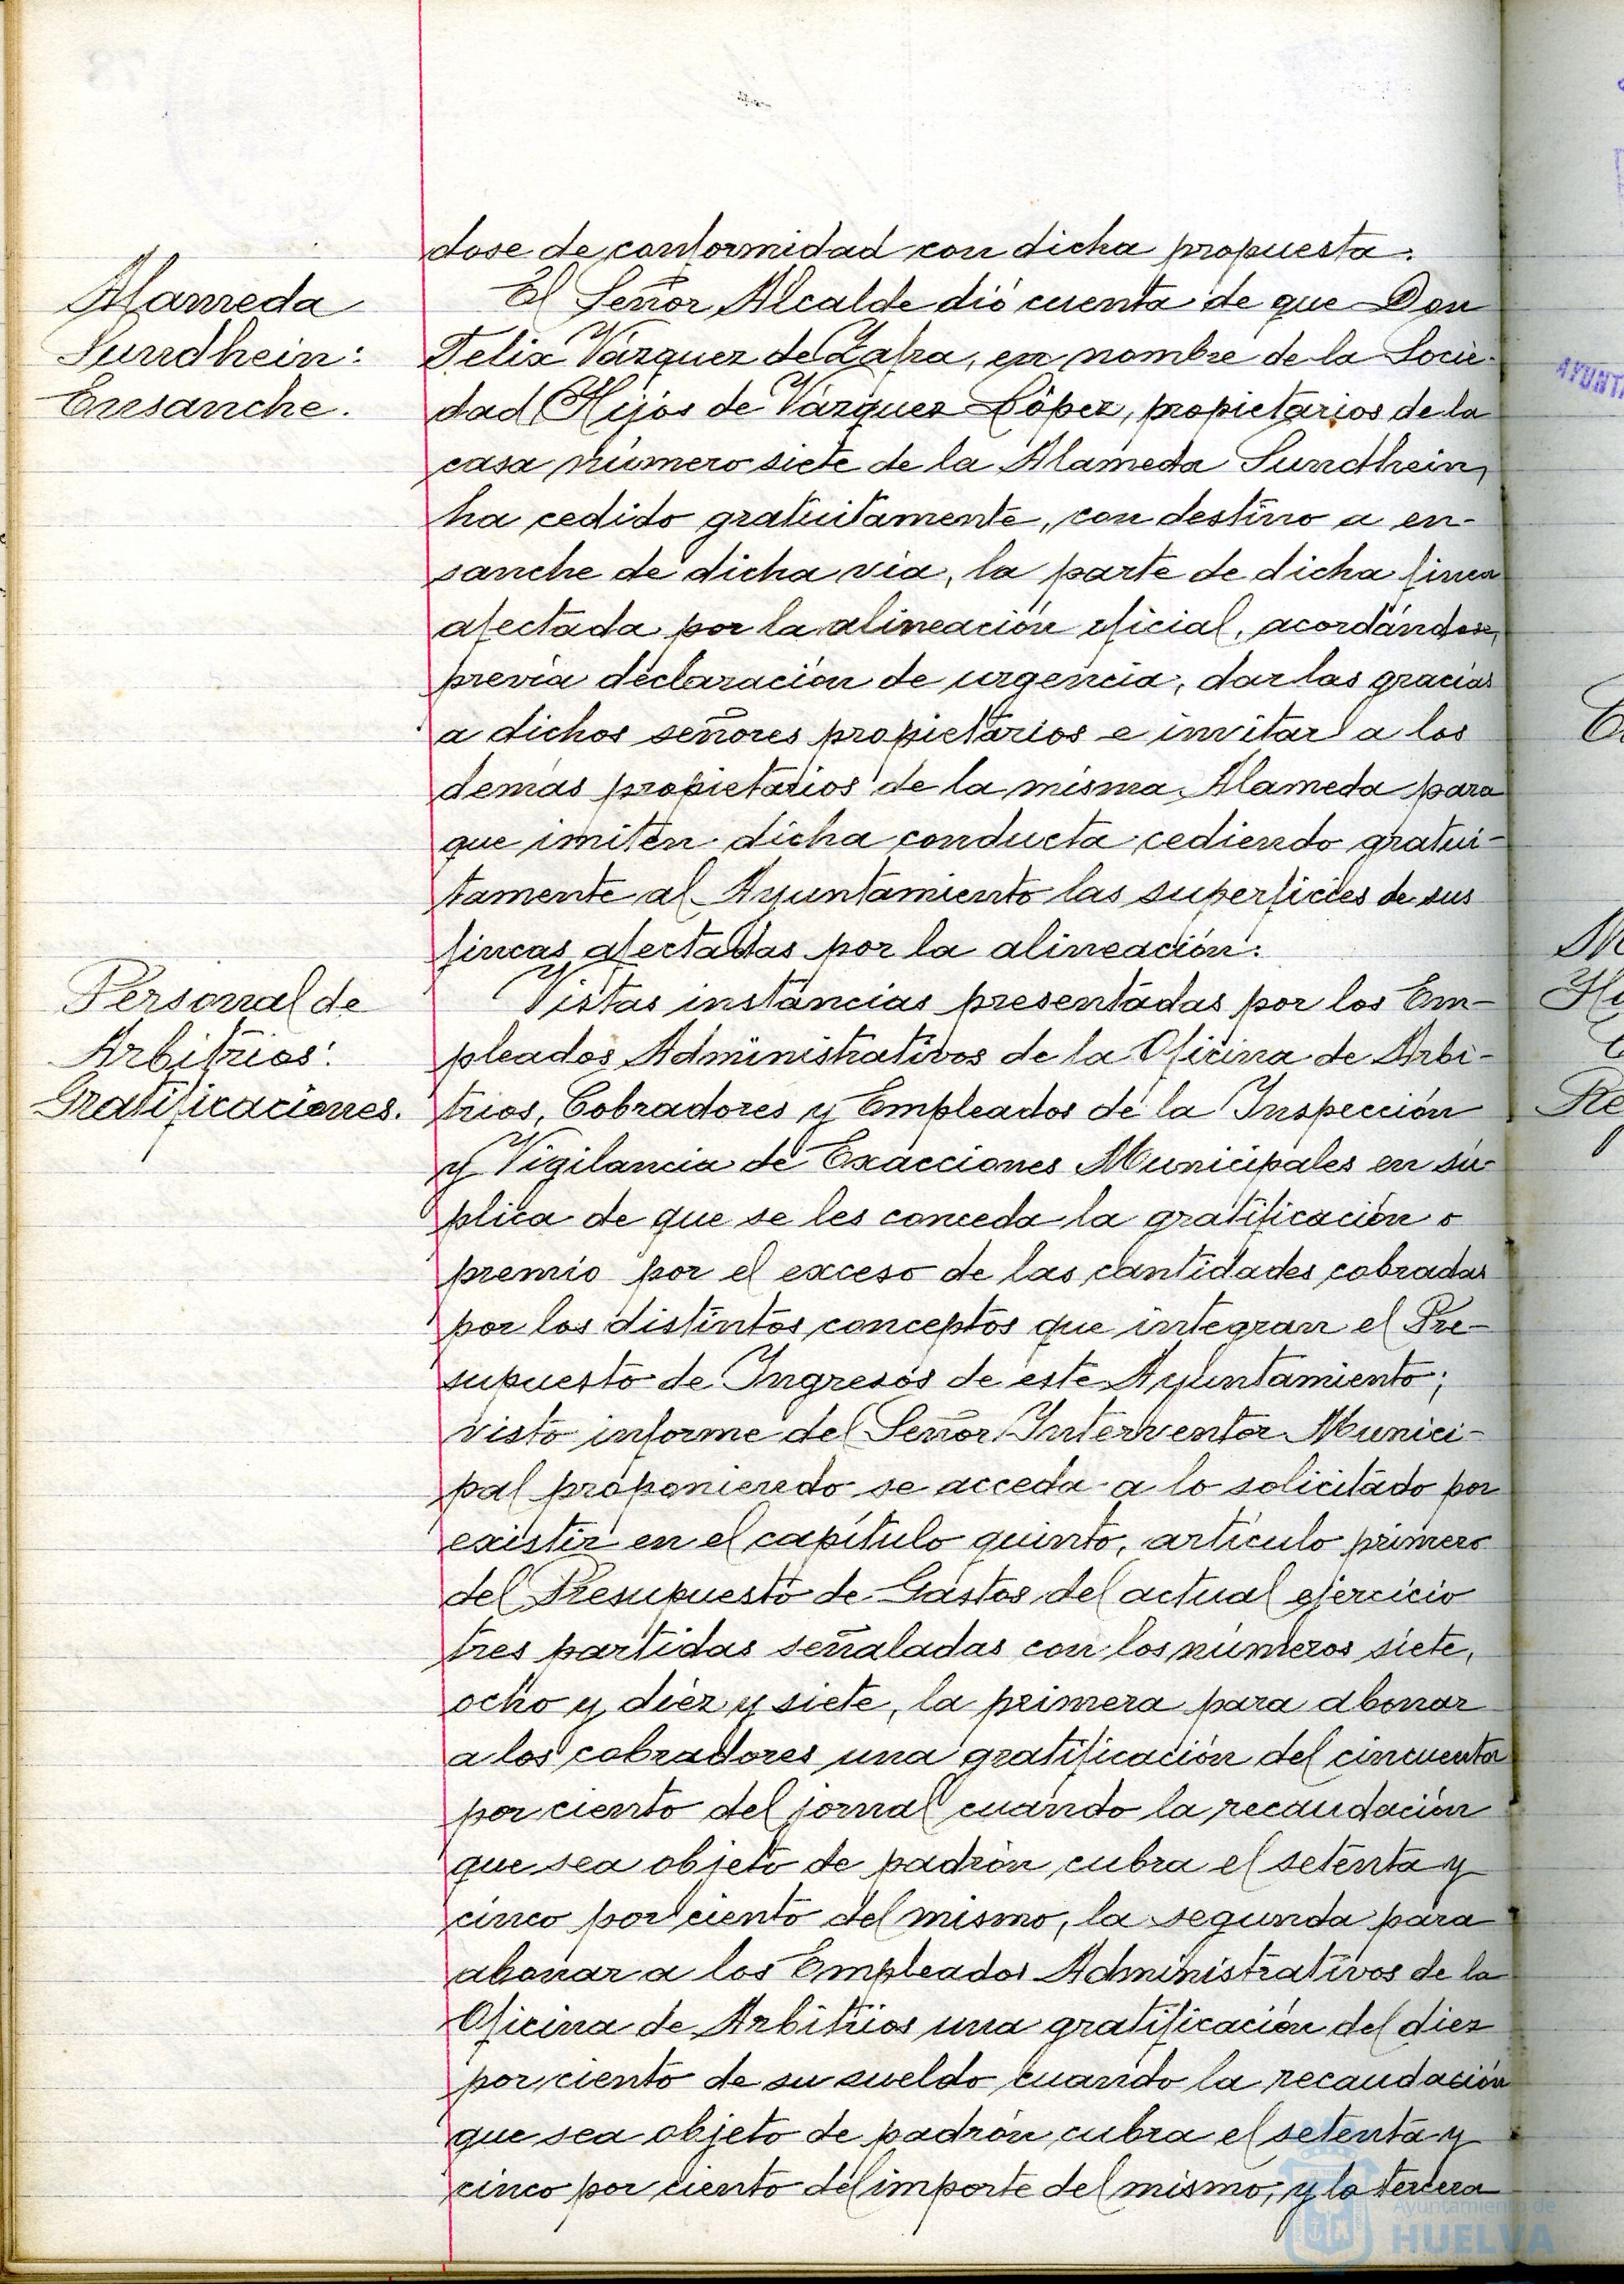 dose de conformidad con dicha propuesta.
Alameda
Sundhein:
Ensanche.
El Señor Alcalde dió cuenta de que Don
Felix Vázquez de Zafra, en nombre de la Socie-
dad Hijos de Vázquez López, propietarios de la
casa número siete de la Alameda Sundhein,
ha cedido gratuitamente, con destino a en-
sanche de dicha via, la parte de dicha finca
afectada por la alineación oficial, acordándose,
previa declaración de urgencia, dar las gracias
a dichos señores propietarios e invitar a los
demás propietarios de la misma Alameda para
que imiten dicha conducta cediendo gratui-
tamente al Ayuntamiento las superficies de sus
fincas afectadas por la alineación.
Personal de
Arbitrios:
Gratificaciones.
Vistas instancias presentadas por los Em-
pleados Administrativos de la Oficina de Arbi-
trios, Cobradores y Empleados de la Inspección
y Vigilancia de Exacciones Municipales en sú-
plica de que se les conceda la gratificación o
premio por el exceso de las cantidades cobradas
por los distintos conceptos que integran el Pre-
supuesto de Ingresos de este Ayuntamiento;
visto informe del Señor Interventor Munici-
pal proponiendo se acceda a lo solicitado por
existir en el capítulo quinto, artículo primero
del Presupuesto de Gastos del actual ejercicio
tres partidas señaladas con los números siete,
ocho y diez y siete, la primera para abonar
a los cobradores una gratificación del cincuenta
por ciento del jornal cuando la recaudación
que sea objeto de padrón cubra el setenta y
cinco por ciento del mismo, la segunda para
abonar a los Empleados Administrativos de la
Oficina de Arbitrios una gratificación del diez
por ciento de su sueldo cuando la recaudación
que sea objeto de padrón cubra el setenta y
cinco por ciento del importe del mismo, y la tercera
Ayuntamiento de
HUELVA